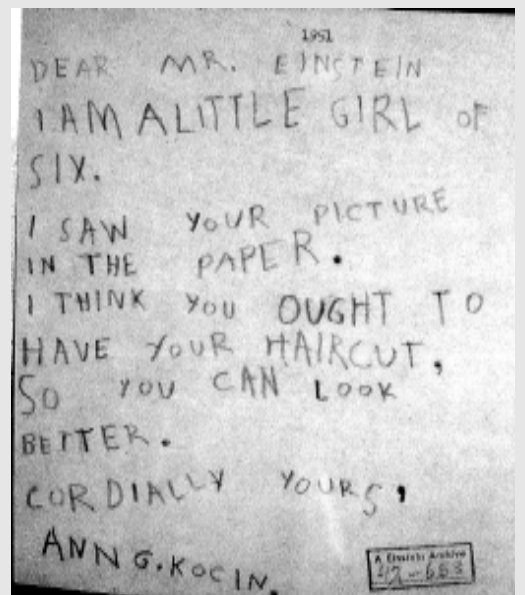 1951
DEAR MR. EINSTEIN
I AM A LITTLE GIRL OF
SIX.
I SAW YOUR PICTURE
IN THE PAPER.
I THINK YOU OUGHT TO
HAVE YOUR HAIRCUT,
SO YOU CAN LOOK
BETTER.
CORDIALLY YOURS,
ANN G. KOCIN.
A Einstein Archive